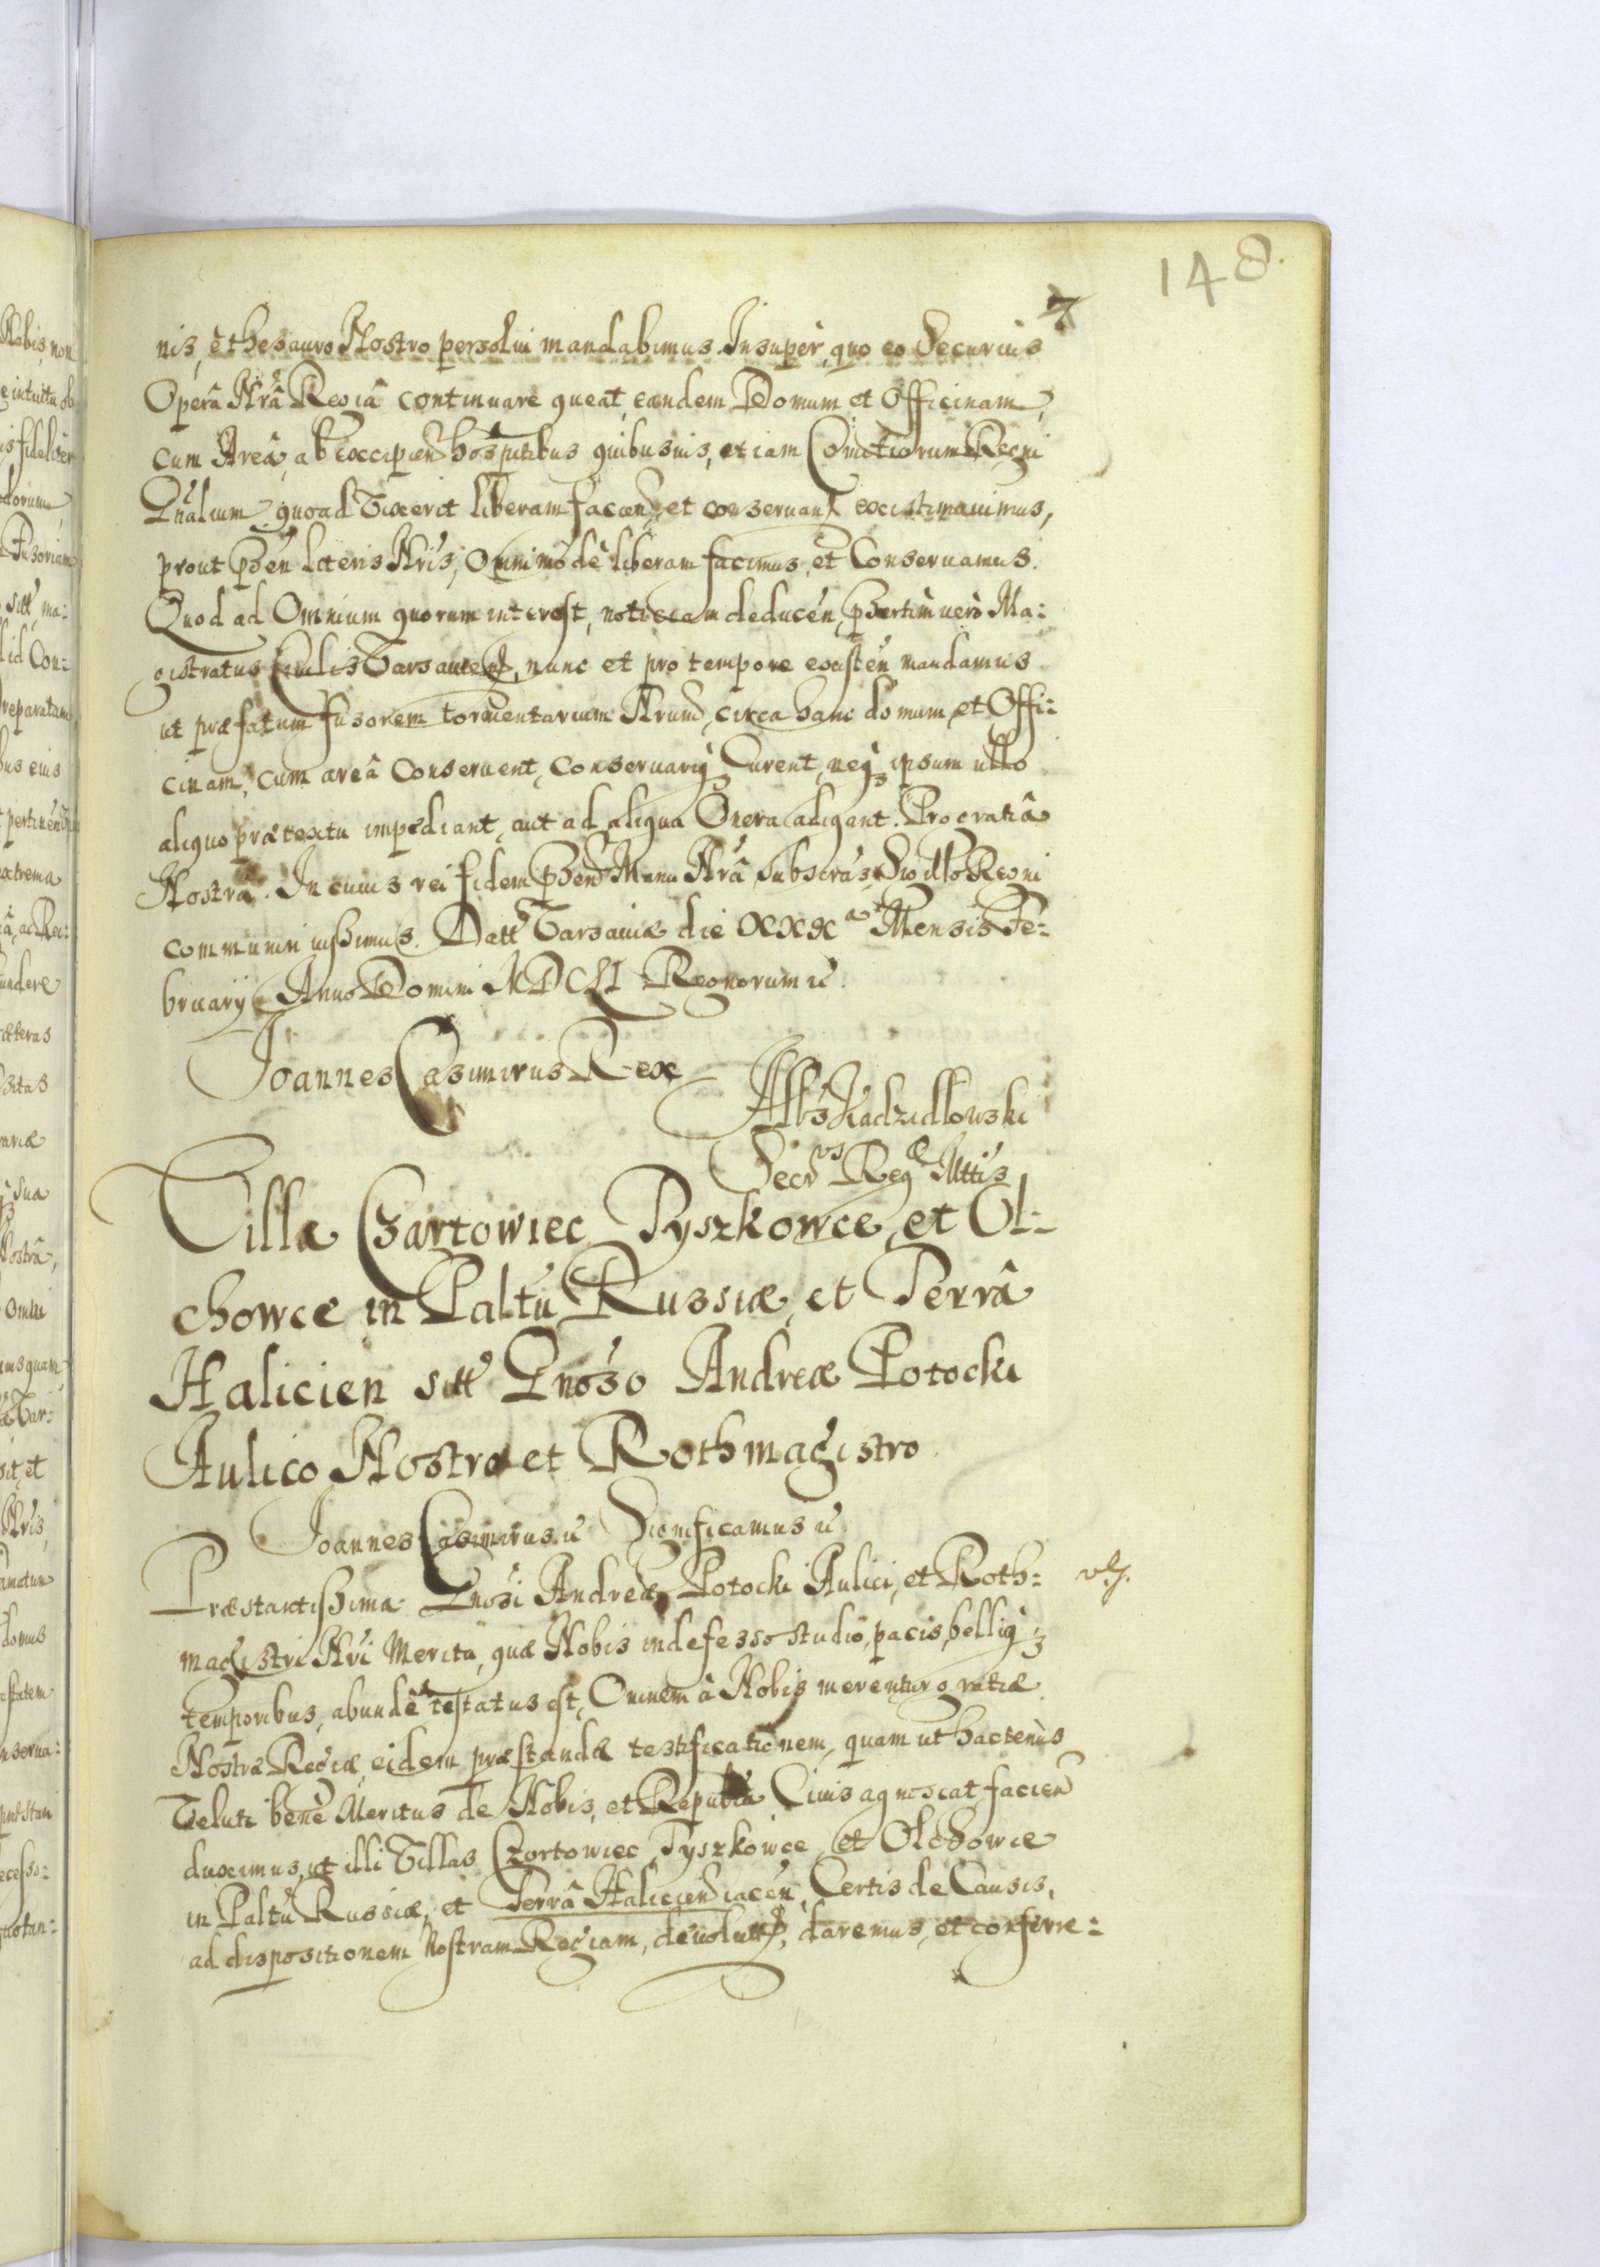 148.
7
nis, è thesauro Nostro persolui mandabimus. Insuper, quo eo Securius
Operâ Nrâ Regiâ continuare queat, eandem Domum et Officinam,
cum Areâ, ab excipien hospitibus quibusuis, etiam Comitiorum Regni
Gñalium, quoad Vixerit liberam facien, et conseruan existimauimus,
prout pñtibus literis Nris, Omnimodè liberam facimus, et Conseruamus.
Quod ad Omnium quorum interest, notitiam deducen, psertim verò Ma:
gistratus Ciuilis Varsauien, nunc et pro tempore existen mandamus
ut præfatum fusorem tormentarium Nrum, circa hanc domum, et Offi:
cinam, cum areâ conseruent, conseruariq Curent, neq ipsum ullo
aliquo prætextu impediant, aut ad aliqua Onera adigant. Pro gratiâ
Nostrâ. In cuius rei fidem psen Manu Nrâ Subscras, Sigillo Regni
communiri iussimus. Datt Varsauiæ die XXX a Mensis Fe:
bruarij Anno Domini MDCLI Regnorum ec
Joannes Casimirus Rex
Albs Kadzidlowski
Secrus Regæ Mttis
Villæ Czartowiec Pyszkowce, et Ol:
chowce in Paltu Russiæ, et Terrâ
Halicien sitt Gnoso Andreæ Potocki
Aulico Nostro et Rothmagistro
Joannes Casimirus ec Significamus ec
Præstantissima Gnosi Andreæ Potocki Aulici, et Roth:
magistri Nri Merita, quæ Nobis indefesso studio, pacis, belliq
temporibus, abundè testatus est, Omnem à Nobis merentur gratiæ
Nostræ Regiæ, eidem præstandæ testificationem, quam ut hactenùs
Veluti benè Meritus de Nobis, et Republca Ciuis agnoscat facien
duximus, ut illi Villas Czortowiec, Pyszkowce, et Olchowce
in Paltu Russiæ, et Terrâ Halicien iacen, Certis de Causis,
ad dispositionem Nostram Regiam, deuolutt, daremus, et conferre: